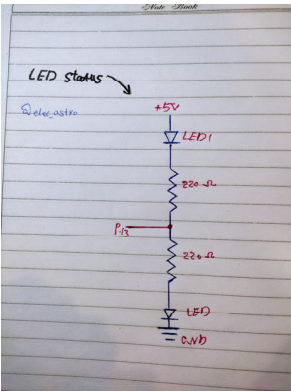 Note Book
LED Status
@elec_astro
+5V
LED1
220 Ω
P.13
220 Ω
LED
GND